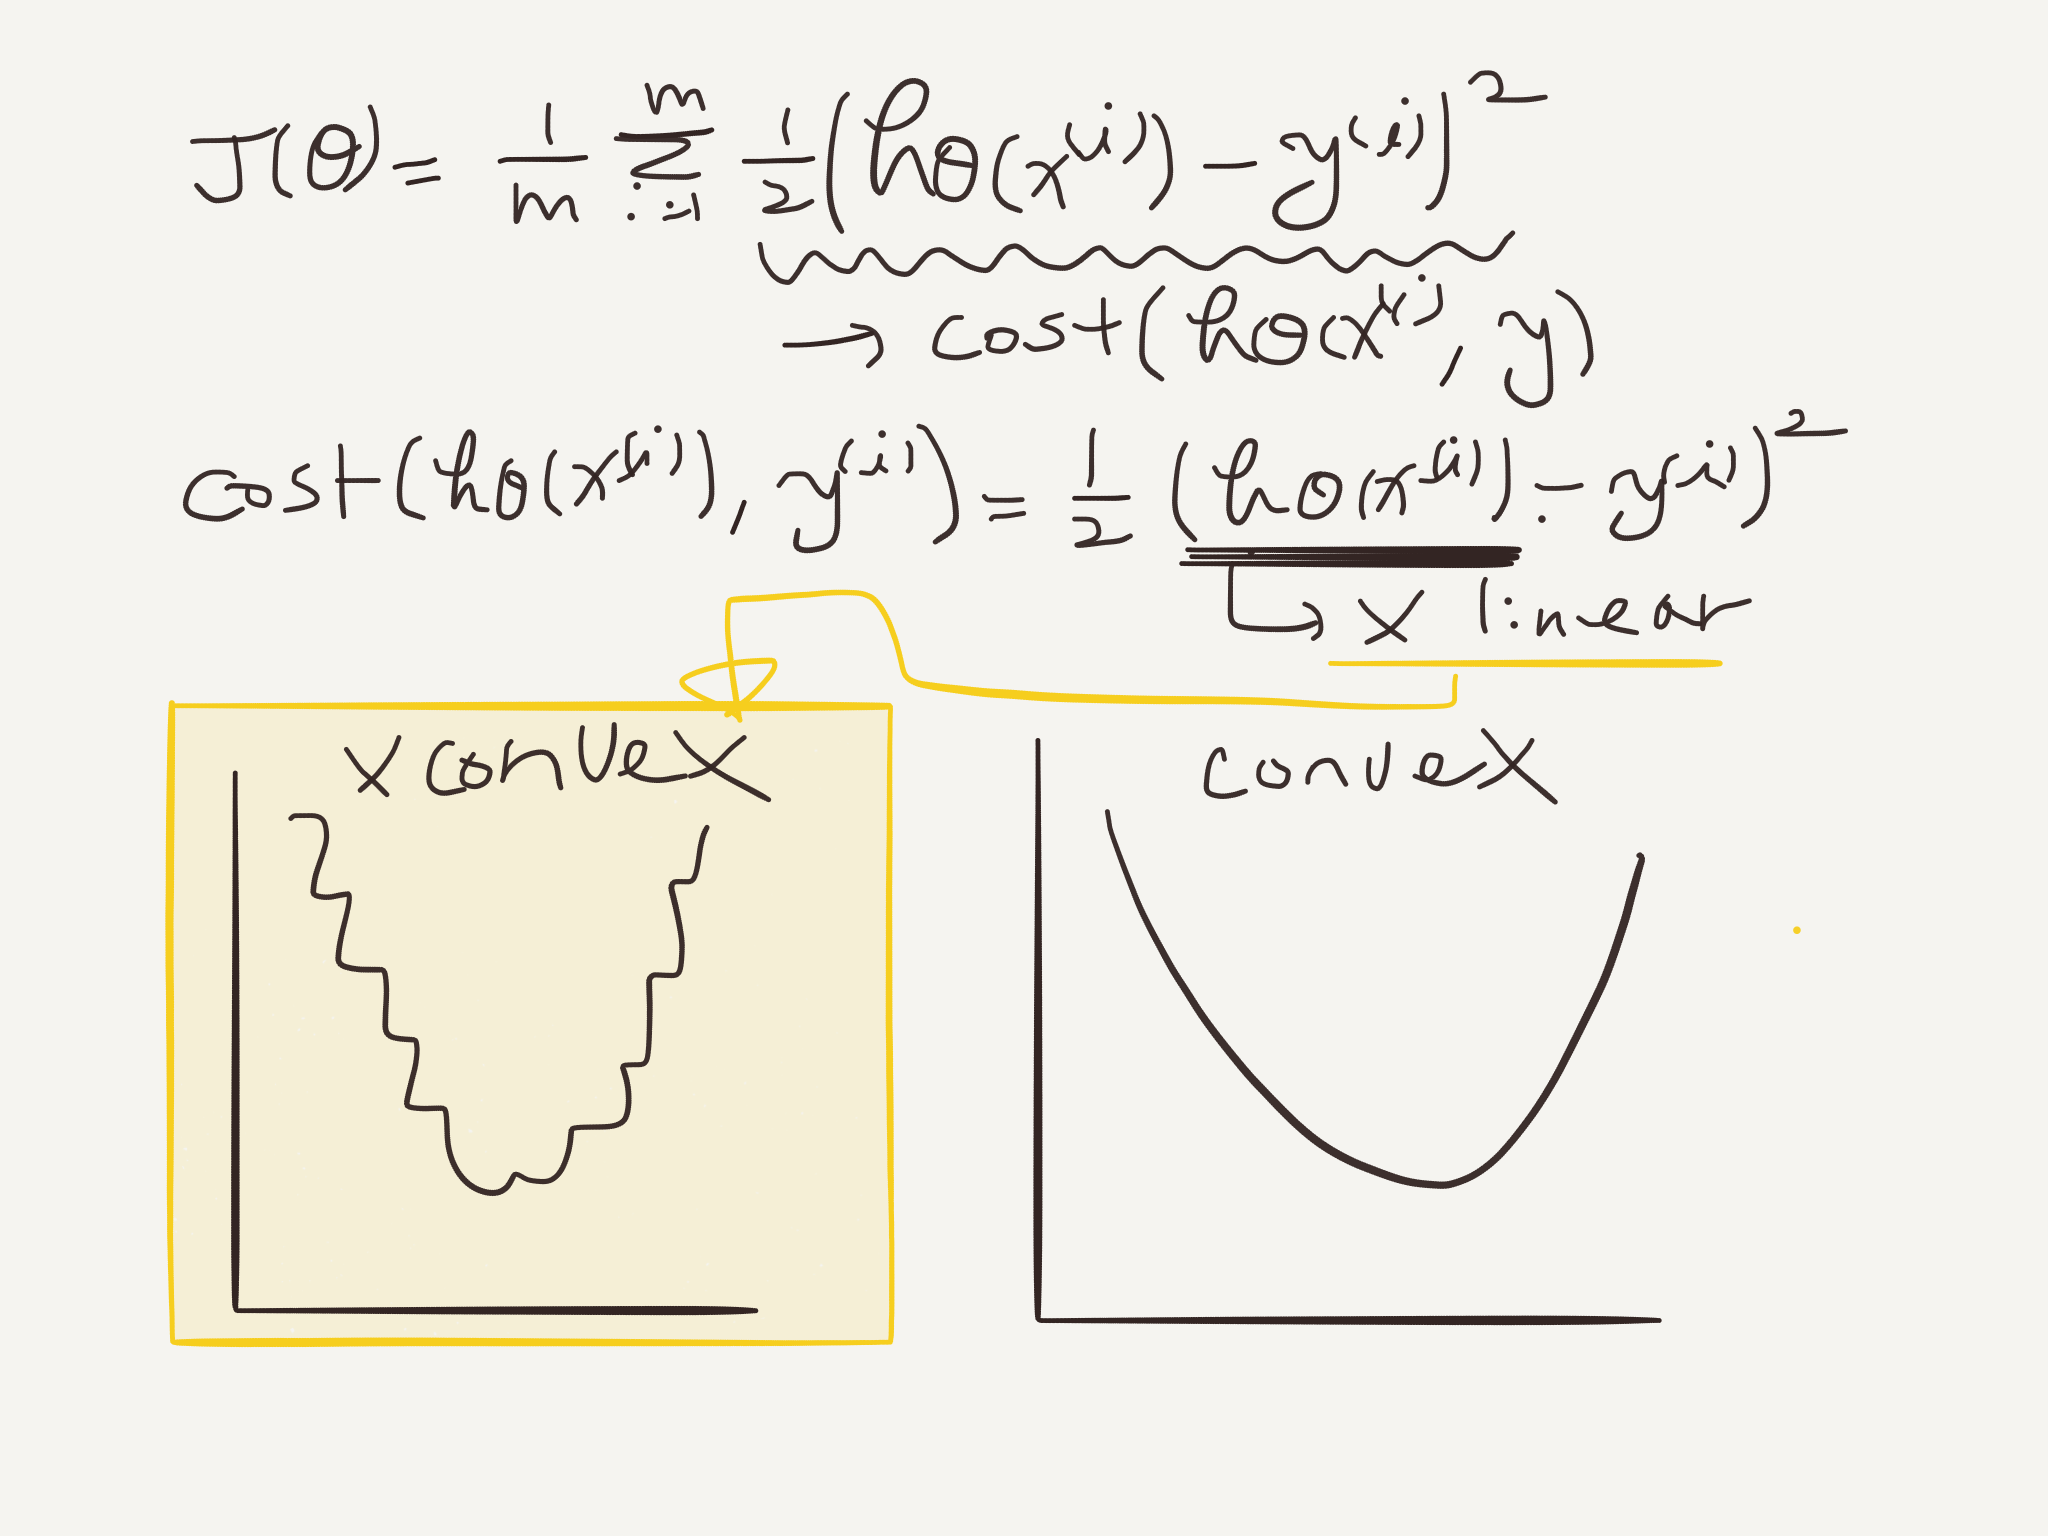 J(θ) = 1/m Σ_{i=1}^{m} 1/2 (hθ(x^(i)) - y^(i))^2
→ cost(hθ(x^(i), y)
cost(hθ(x^(i)), y^(i)) = 1/2 (hθ(x^(i)) - y^(i))^2
↳ x linear
x convex
convex